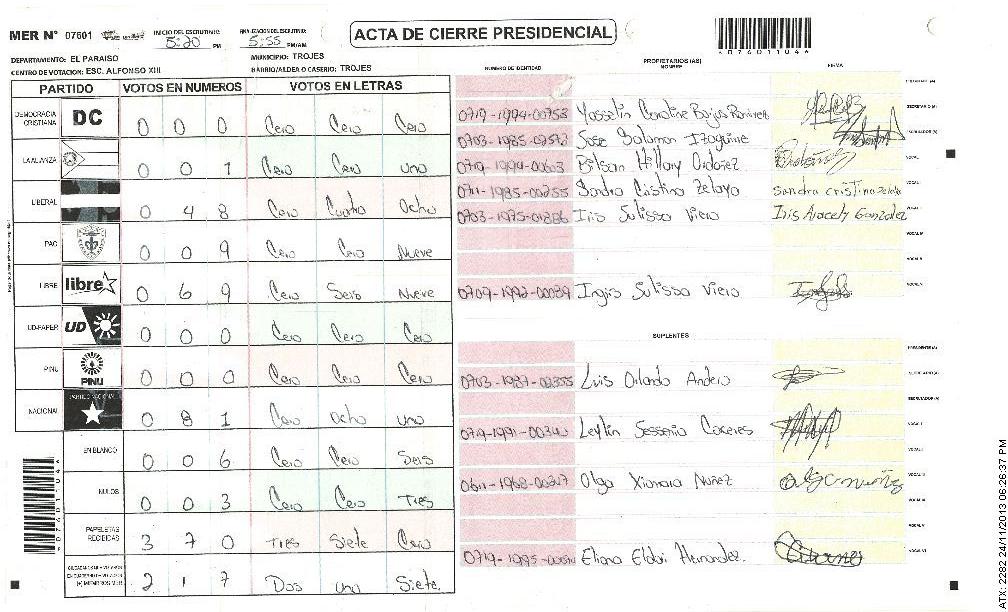 MER N° 07601
INICIO DEL ESCRUTINIO: 5:20 PM
FINALIZACION DEL ESCRUTINIO: 5:55 PM/AM
ACTA DE CIERRE PRESIDENCIAL
DEPARTAMENTO: EL PARAISO
MUNICIPIO: TROJES
CENTRO DE VOTACION: ESC. ALFONSO XIII
BARRIO/ALDEA O CASERIO: TROJES
PARTIDO VOTOS EN NUMEROS VOTOS EN LETRAS
DEMOCRACIA CRISTIANA DC 0 0 0 Cero Cero Cero
LA ALIANZA 0 0 1 Cero Cero uno
LIBERAL 0 4 8 Cero Cuatro Ocho
PAC 0 0 9 Cero Cero Nueve
LIBRE libre 0 6 9 Cero Seis Nueve
UD-FAPER UD 0 0 0 Cero Cero Cero
PINU PINU 0 0 0 Cero Cero Cero
NACIONAL PARTIDO NACIONAL 0 8 1 Cero Ocho uno
EN BLANCO 0 0 6 Cero Cero Seis
NULOS 0 0 3 Cero Cero Tres
PAPELETAS RECIBIDAS 3 7 0 Tres Siete Cero
(+) MIEMBROS MER 2 1 7 Dos uno Siete
NUMERO DE IDENTIDAD
PROPIETARIOS (AS)
NOMBRE
FIRMA
0719-1994-00753
0703-1985-02572 Jose Salomon Izaguirre
0719-1994-00603 Hillary Ordoñez
0711-1985-00255 Sandra Cristina Zelaya sandra cristina zelaya
0703-1975-01886 Iris Julissa Viera Iris Aracely Gonzalez
0709-1992-00039 Julissa Viera
SUPLENTES
0703-1987-02355 Luis Orlando
0719-1991-00340 Leylin Caceres
Olga Xiomara Nuñez
Hernandez
ATX: 2282 24/11/2013 06:26:37 PM